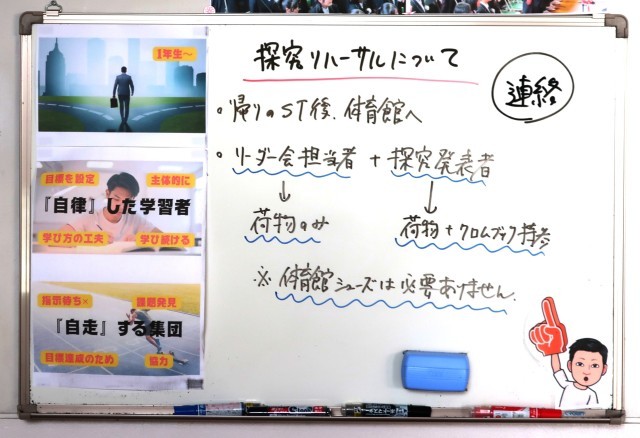 1年生～
目標を設定
主体的に
『自律』した学習者
学び方の工夫
学び続ける
指示待ち×
課題発見
『自走』する集団
目標達成のため
協力
探究リハーサルについて
連終
・帰りのST後、体育館へ
・リーダー会担当者 + 探究発表者
↓ ↓
荷物のみ 荷物+クロムブック持参
※体育館シューズは必要ありません。